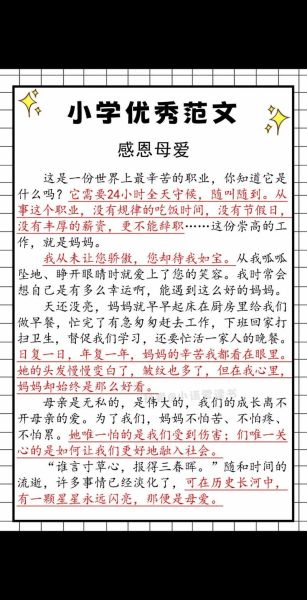 小学优秀范文
感恩母爱
这是一份世界上最辛苦的职业，你知道它是
什么吗？它需要24小时全天守候，随叫随到。从
事这个职业，没有规律的吃饭时间，没有节假日，
没有丰厚的薪资，更不能辞职……这份崇高的工
作，就是妈妈。
我从未让您骄傲，您却待我如宝。从我呱呱
坠地、睁开眼睛时就爱上了您的笑容。我时常会
想自己是有多么幸运啊，能遇到这么好的妈妈。
天还没亮，妈妈就早早起床在厨房里给我们
做早餐，忙完了有急匆匆赶去工作，下班回家打
扫卫生，督促我们学习，还要忙活一家人的晚餐。
日复一日，年复一年，妈妈的辛苦我都看在眼里。
她的头发慢慢变白了，皱纹也多了，但在我心里，
妈妈却始终是那么好看。
母亲是无私的，是伟大的，我们的成长离不
开母亲的爱。为了我们，妈妈不怕苦、不怕疼、
不怕累。她唯一怕的是我们受到伤害；们唯一关
心的是如何让我们更好地融入社会。
“谁言寸草心，报得三春晖。”随和时间的
流逝，许多事情已经淡化了，可在历史长河中，
有一颗星星永远闪亮，那便是母爱。